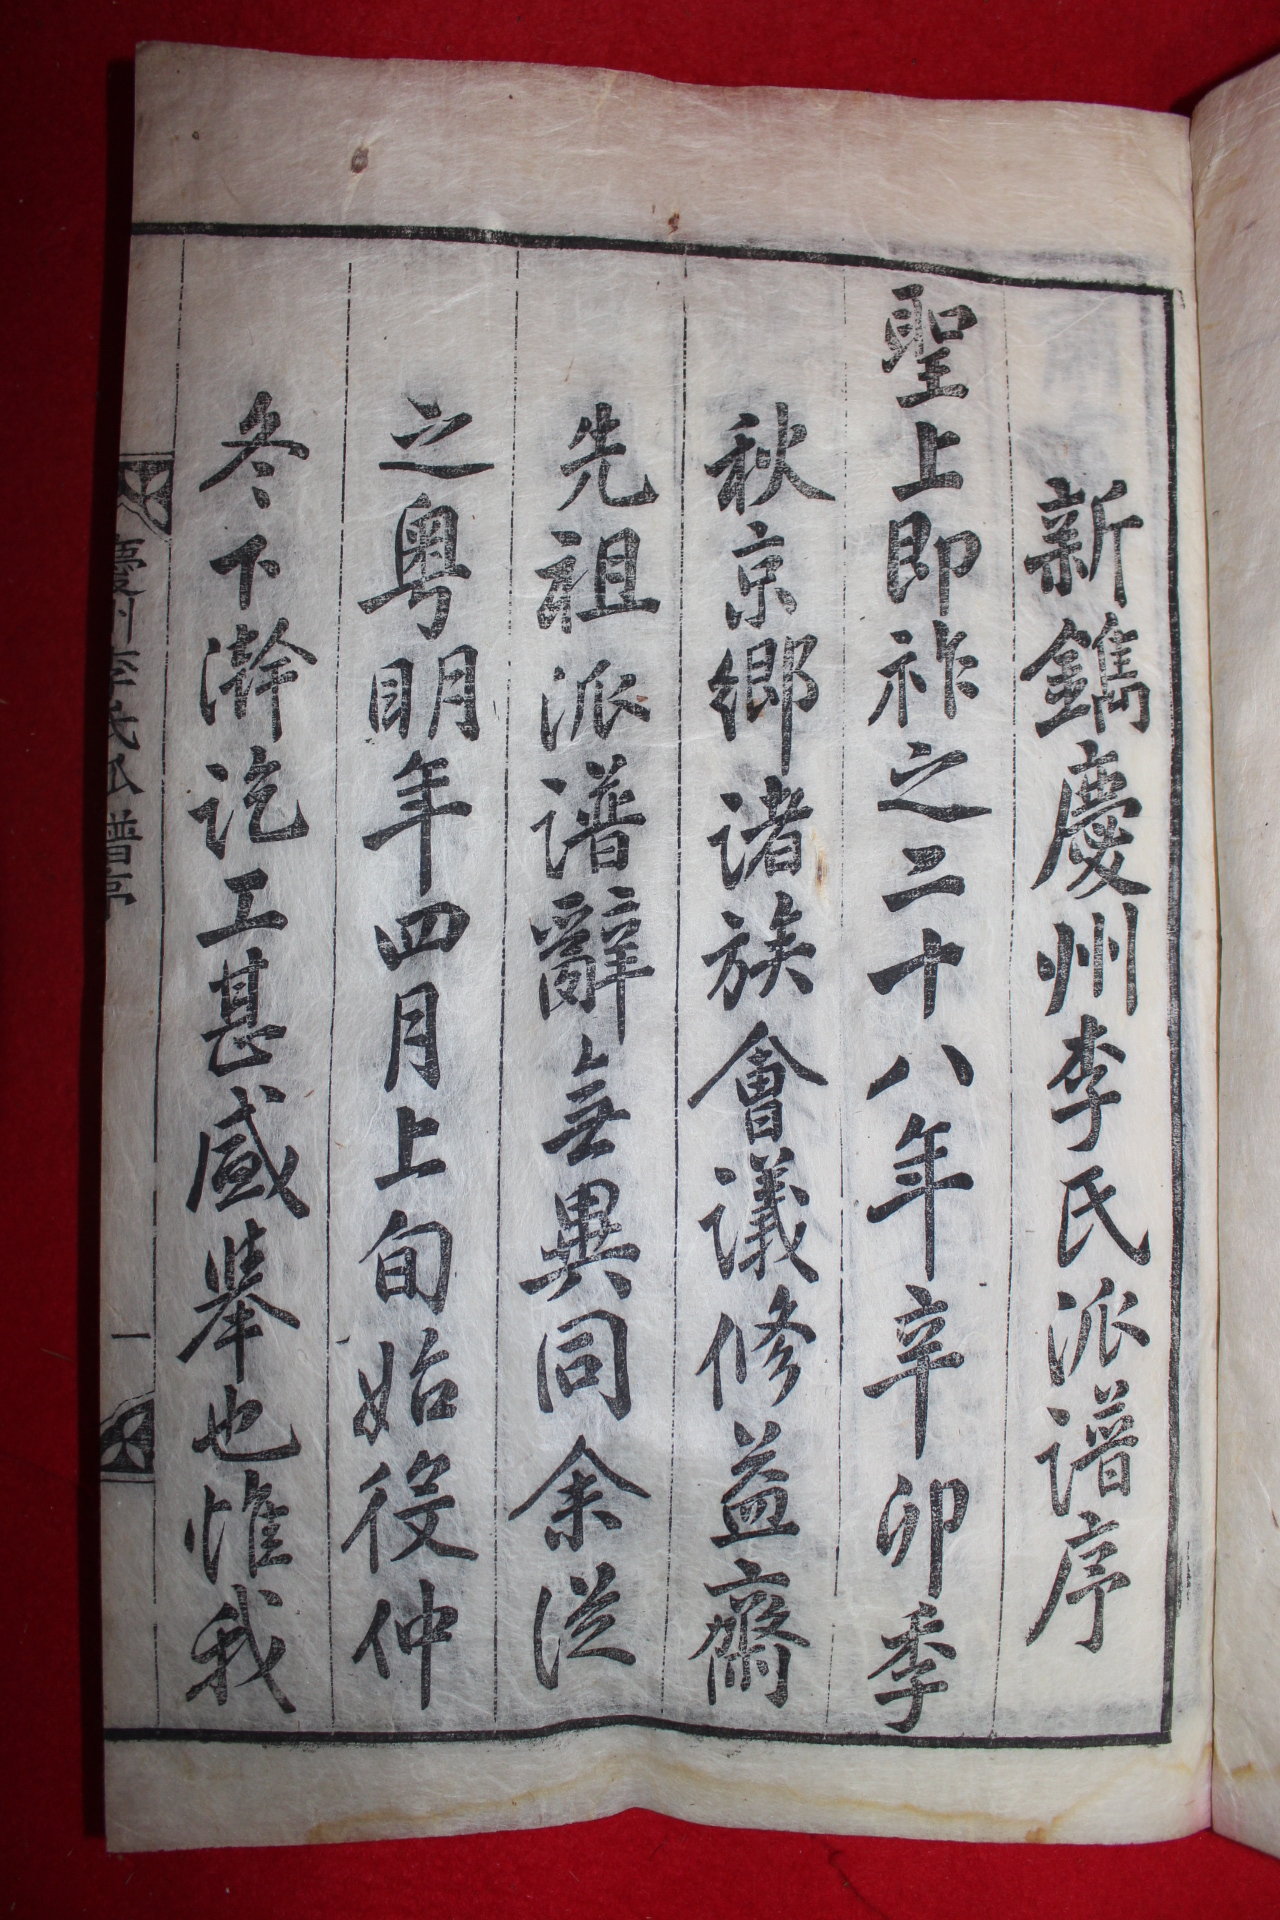 新鐫慶州李氏派譜序
聖上即祚之二十八年辛卯季
秋京鄉諸族會議修益齋
先祖派譜辭無異同余從
之粤明年四月上旬始役仲
冬下澣訖工甚盛擧也惟我
慶州李氏派譜序
一